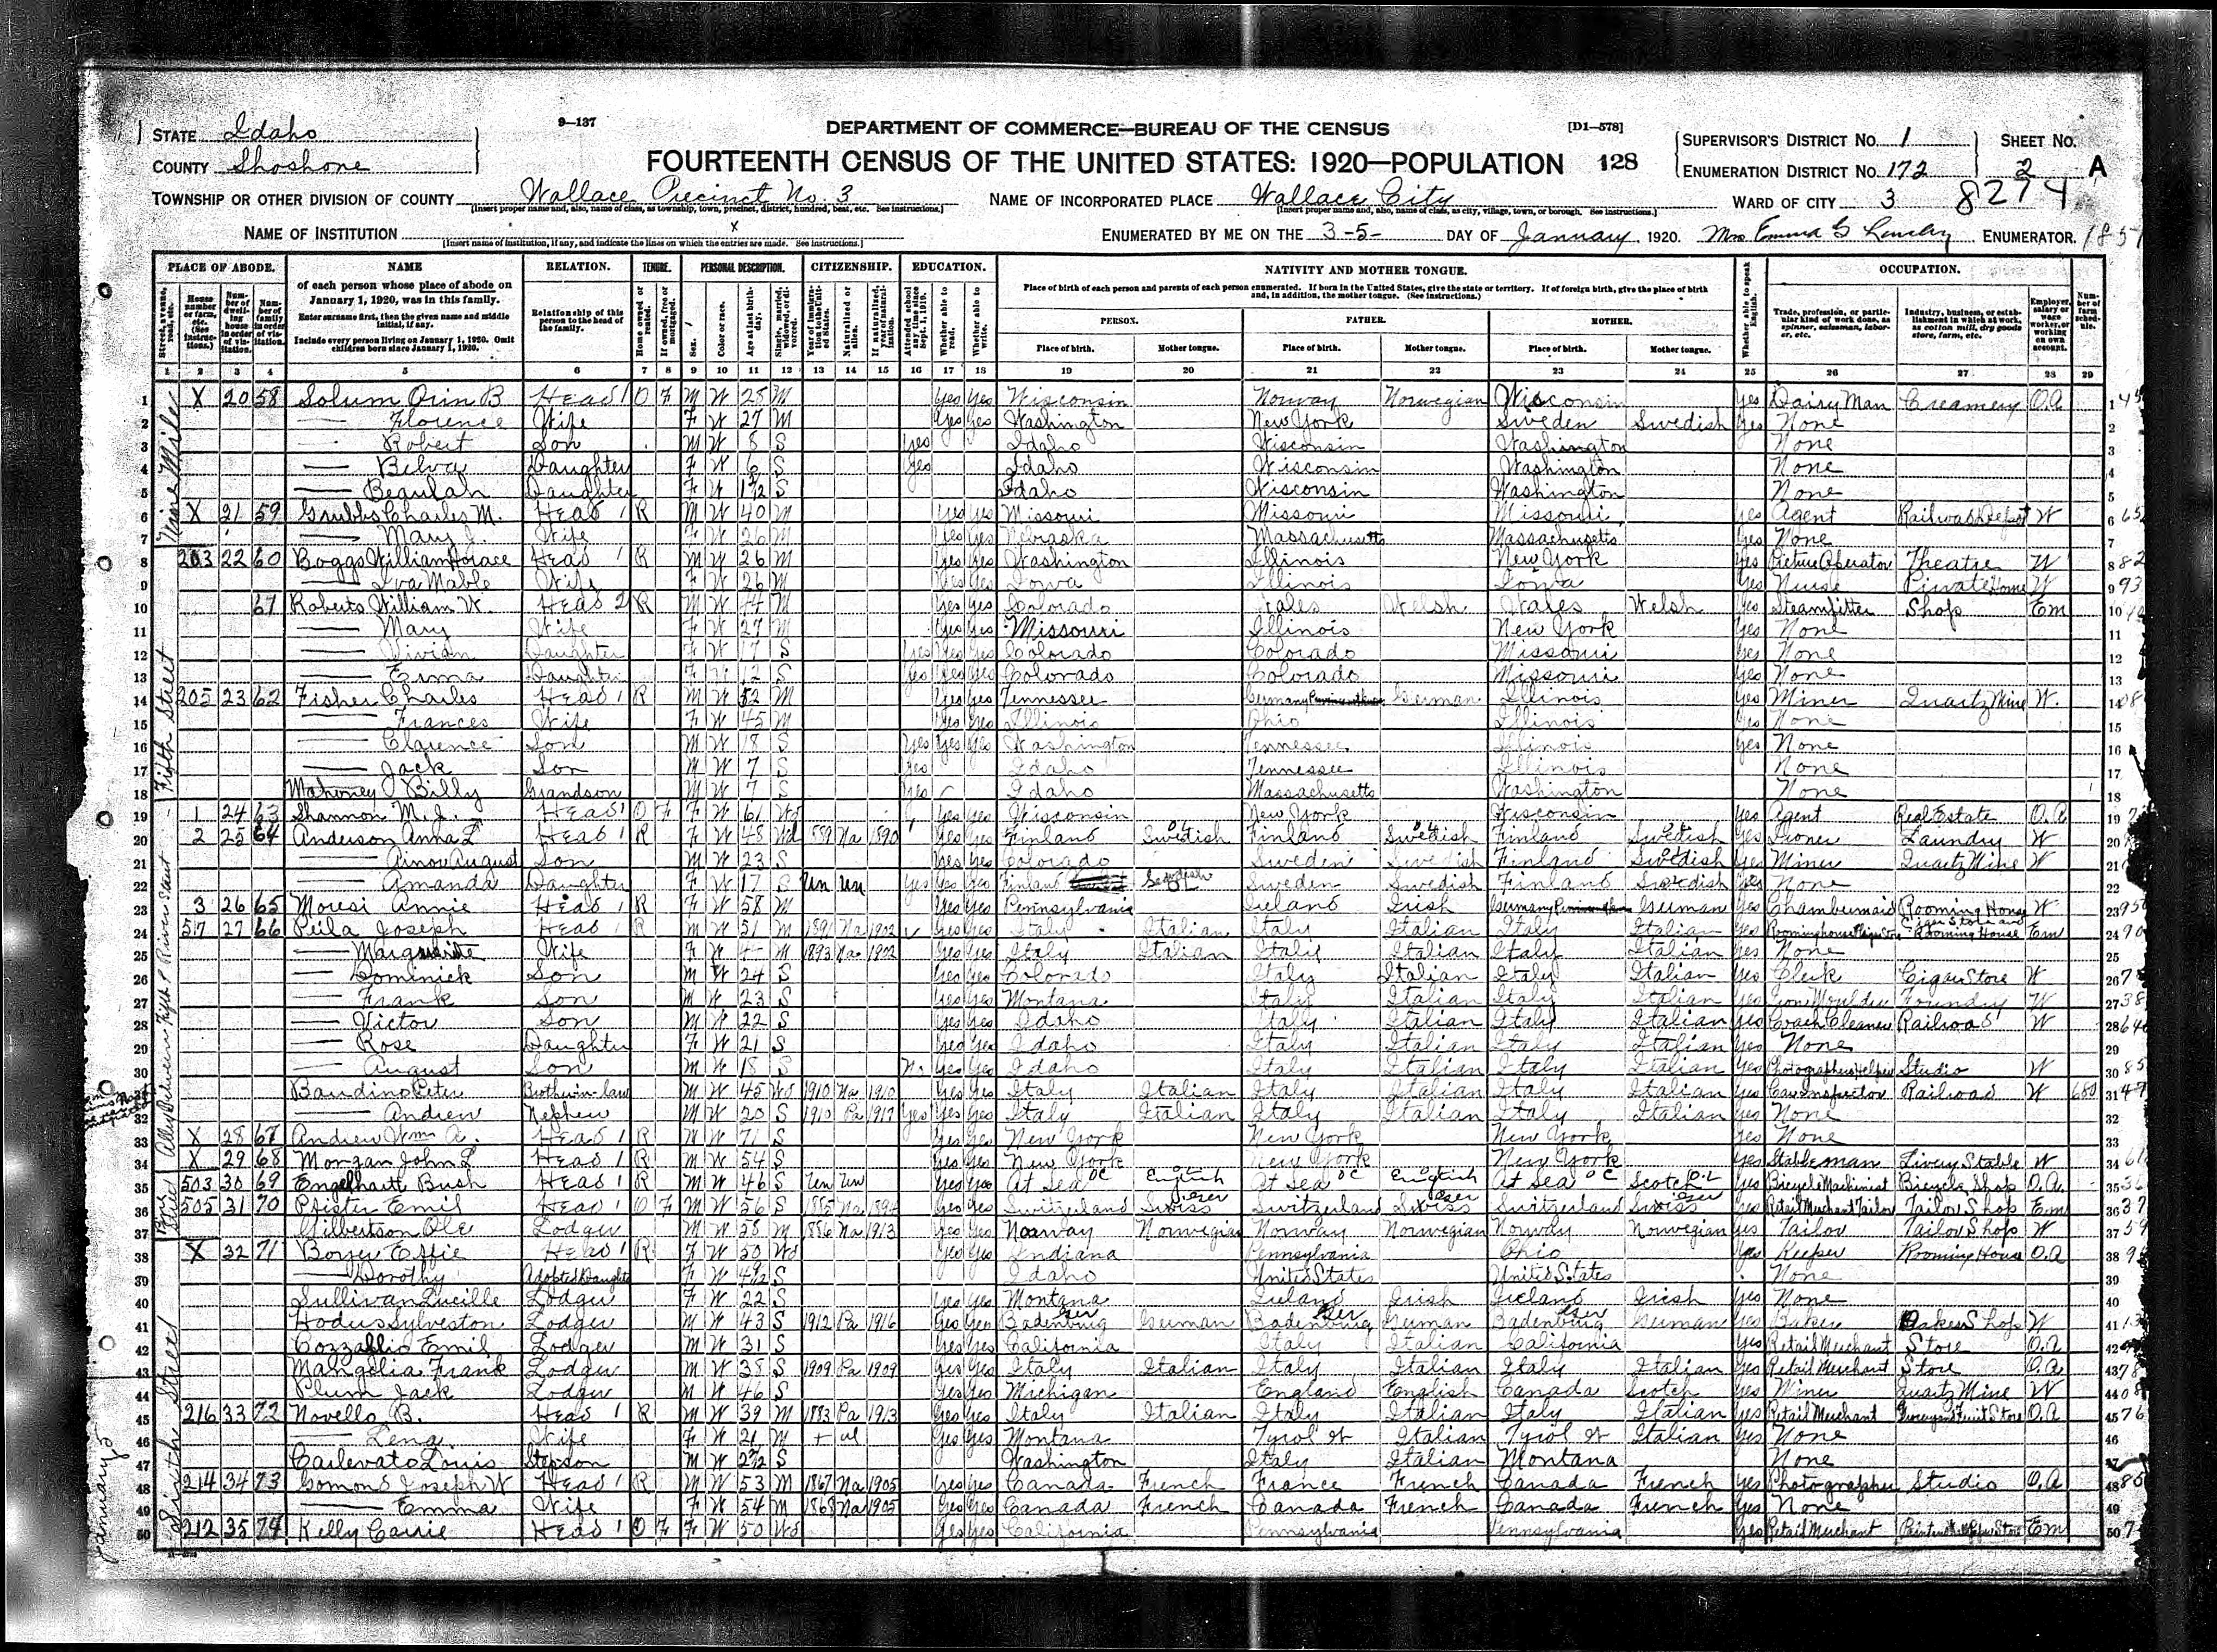 9—137
DEPARTMENT OF COMMERCE—BUREAU OF THE CENSUS
[D1—578]
STATE Idaho
COUNTY Shoshone
FOURTEENTH CENSUS OF THE UNITED STATES: 1920—POPULATION 128
SUPERVISOR'S DISTRICT No. 1
ENUMERATION DISTRICT No. 172
SHEET No. 2 A
TOWNSHIP OR OTHER DIVISION OF COUNTY Wallace Precinct No. 3
NAME OF INCORPORATED PLACE Wallace City
WARD OF CITY 3 8274
NAME OF INSTITUTION x
ENUMERATED BY ME ON THE 3-5- DAY OF January, 1920. Mrs Emma G ENUMERATOR.
PLACE OF ABODE. NAME RELATION. TENURE. PERSONAL DESCRIPTION. CITIZENSHIP. EDUCATION. NATIVITY AND MOTHER TONGUE. OCCUPATION.
of each person whose place of abode on January 1, 1920, was in this family.
Enter surname first, then the given name and middle initial, if any.
Include every person living on January 1, 1920. Omit children born since January 1, 1920.
Relationship of this person to the head of the family.
Place of birth of each person and parents of each person enumerated. If born in the United States, give the state or territory. If of foreign birth, give the place of birth and, in addition, the mother tongue. (See instructions.)
PERSON. FATHER. MOTHER.
Place of birth. Mother tongue. Place of birth. Mother tongue. Place of birth. Mother tongue.
1 2 3 4 5 6 7 8 9 10 11 12 13 14 15 16 17 18 19 20 21 22 23 24 25 26 27 28 29
1 X 20 58 Solum Orin B Head 1 O F M W 28 M Yes Yes Wisconsin Norway Norwegian Wisconsin Yes Dairy Man Creamery O.A
2 — Florence Wife F W 27 M Yes Yes Washington New York Sweden Swedish Yes None
3 — Robert Son M W 8 S Yes Idaho Wisconsin Washington None
4 — Belva Daughter F W 6 S Yes Idaho Wisconsin Washington None
5 — Beaulah Daughter F W S Idaho Wisconsin Washington None
6 X 21 59 Grubbs Charles M. Head 1 R M W 40 M Yes Yes Missouri Missouri Missouri Yes Agent Railroad W
7 — Mary J. Wife F W 26 M Yes Yes Nebraska Massachusetts Massachusetts Yes None
8 203 22 60 Boggs William Horace Head 1 R M W 26 M Yes Yes Washington Illinois New York Yes Picture Operator Theatre W
9 — Iva Mable Wife F W 26 M Yes Yes Iowa Illinois Iowa Yes Nurse Private Home W
10 61 Roberts William W. Head 2 R M W 44 M Yes Yes Colorado Wales Welsh Wales Welsh Yes Steamfitter Shop Em
11 — Mary Wife F W 27 M Yes Yes Missouri Illinois New York Yes None
12 — Vivian Daughter F W 17 S Yes Yes Yes Colorado Colorado Missouri Yes None
13 — Erma Daughter F W 12 S Yes Yes Yes Colorado Colorado Missouri Yes None
14 205 23 62 Fisher Charles Head 1 R M W 52 M Yes Yes Tennessee Germany German Illinois Yes Miner Quartz Mine W.
15 — Frances Wife F W 45 M Yes Yes Illinois Ohio Illinois Yes None
16 — Clarence Son M W 18 S Yes Yes Yes Washington Tennessee Illinois Yes None
17 — Jack Son M W 7 S Yes Idaho Tennessee Illinois None
18 Mahoney Billy Grandson M W 7 S Yes Idaho Massachusetts Washington None
19 1 24 63 Shannon M. J. Head 1 O F F W 61 Wd Yes Yes Wisconsin New York Wisconsin Yes Agent Real Estate O.A
20 2 25 64 Anderson Anna L Head 1 R F W 48 Wd 1889 Na 1890 Yes Yes Finland Swedish Finland Swedish Finland Swedish Yes Ironer Laundry W
21 — August Son M W 23 S Yes Yes Colorado Sweden Swedish Finland Swedish Yes Miner Quartz Mine W
22 — Amanda Daughter F W 17 S Un Un Yes Yes Yes Finland Swedish Sweden Swedish Finland Swedish Yes None
23 3 26 65 Moresi Annie Head 1 R F W 58 M Yes Yes Pennsylvania Ireland Irish Germany German Yes Chambermaid Rooming House W
24 517 27 66 Peila Joseph Head 1 R M W 51 M 1891 Na 1902 Yes Yes Italy Italian Italy Italian Italy Italian Yes Cigar Store and Rooming House Em
25 — Marguerite Wife F W M 1893 Na 1902 Yes Yes Italy Italian Italy Italian Italy Italian Yes None
26 — Dominick Son M W 24 S Yes Yes Colorado Italy Italian Italy Italian Yes Clerk Cigar Store W
27 — Frank Son M W 23 S Yes Yes Montana Italy Italian Italy Italian Yes Iron Moulder Foundry W
28 — Victor Son M W 22 S Yes Yes Idaho Italy Italian Italy Italian Yes Coach Cleaner Railroad W
29 — Rose Daughter F W 21 S Yes Yes Idaho Italy Italian Italy Italian Yes None
30 — August Son M W 18 S No Yes Yes Idaho Italy Italian Italy Italian Yes Photographers Helper Studio W
31 Bandino Peter Brother-in-law M W 45 Wd 1910 Na 1910 Yes Yes Italy Italian Italy Italian Italy Italian Yes Car Inspector Railroad W
32 — Andrew Nephew M W 20 S 1910 Pa 1917 Yes Yes Yes Italy Italian Italy Italian Italy Italian Yes None
33 X 28 67 Andrew Wm A. Head 1 R M W 71 S Yes Yes New York New York New York Yes None
34 X 29 68 Morgan John L Head 1 R M W 54 S Yes Yes New York New York New York Yes Stableman Livery Stable W
35 503 30 69 Engelhartt Bush Head 1 R M W 46 S Un Un Yes Yes At Sea English At Sea English At Sea Scotch Yes Bicycle Machinist Bicycle Shop O.A.
36 505 31 70 Pfister Emil Head 1 O F M W 56 S 1885 Na Yes Yes Switzerland Swiss Switzerland Swiss Switzerland Swiss Yes Retail Merchant Tailor Tailor Shop Em
37 Gilbertson Ole Lodger M W 58 M 1886 Na 1913 Yes Yes Norway Norwegian Norway Norwegian Norway Norwegian Yes Tailor Tailor Shop W
38 X 32 71 Boyer Effie Head 1 R F W 50 Wd Yes Yes Indiana Pennsylvania Ohio Yes Keeper Rooming House O.A
39 — Dorothy Adopted Daughter F W S Idaho United States United States None
40 Sullivan Lucille Lodger F W 22 S Yes Yes Montana Ireland Irish Ireland Irish Yes None
41 Hodus Sylveston Lodger M W 43 S 1912 Pa 1916 Yes Yes Badenburg German Badenburg German Badenburg German Yes Baker Baker Shop W
42 Emil Lodger M W 31 S Yes Yes California Italy Italian California Yes Retail Merchant Store O.A
43 Mangelia Frank Lodger M W 38 S 1909 Pa 1909 Yes Yes Italy Italian Italy Italian Italy Italian Yes Retail Merchant Store O.A
44 Plum Jack Lodger M W 46 S Yes Yes Michigan England English Canada Scotch Yes Miner Quartz Mine W
45 216 33 72 Novello B. Head 1 R M W 39 M 1883 Pa 1913 Yes Yes Italy Italian Italy Italian Italy Italian Yes Retail Merchant Fruit Store O.A
46 — Lena Wife F W 21 M Yes Yes Montana Tyrol Italian Tyrol Italian Yes None
47 Carlevato Louis Stepson M W S Washington Italy Italian Montana None
48 214 34 73 Gomond Joseph W Head 1 R M W 53 M 1867 Na 1905 Yes Yes Canada French France French Canada French Yes Photographer Studio O.A
49 — Emma Wife F W 54 M 1868 Na 1905 Yes Yes Canada French Canada French Canada French Yes None
50 212 35 74 Kelly Carrie Head 1 O F F W 50 Wd Yes Yes California Pennsylvania Pennsylvania Yes Retail Merchant Em
Nine Mile
Fifth Street
Sixth Street
January 5